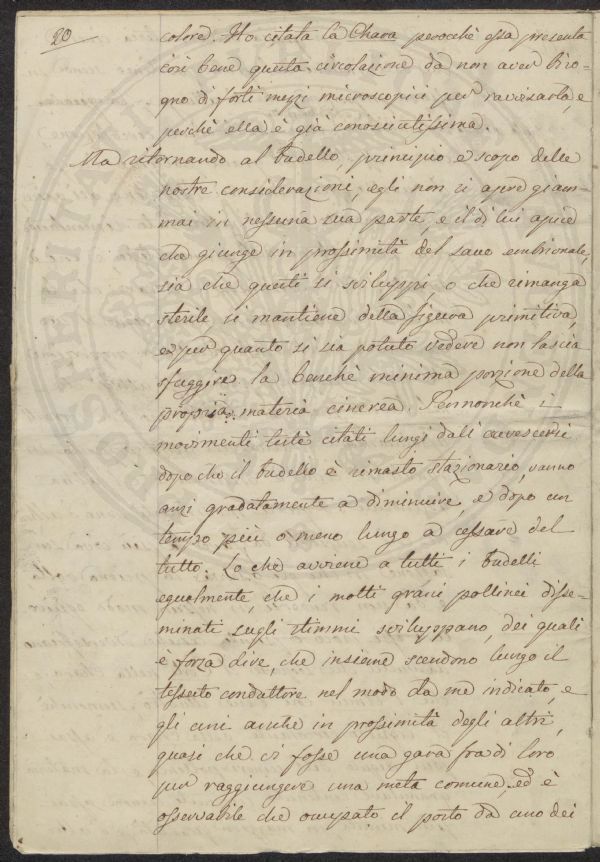 20
colore. Ho citata la Chara perocchè essa presenta
così bene questa circolazione da non aver biso-
gno di forti mezzi microscopici per ravvisarla, e
perchè ella è già conosciutissima.
Ma ritornando al budello, principio e scopo delle
nostre considerazioni, egli non si apre giam-
mai in nessuna sua parte, e il di lui apice
che giunge in prossimità del sacco embrionale,
sia che questi si sviluppi o che rimanga
sterile, si mantiene della figura primitiva,
e per quanto si sia potuto vedere non lascia
sfuggire la benchè minima porzione della
propria materia cinerea. Sennonchè i
movimenti testè citati lungi dall'accrescersi
dopo che il budello è rimasto stazionario, vanno
anzi gradatamente a diminuire, e dopo un
tempo più o meno lungo a cessare del
tutto. Lo che avviene a tutti i budelli
egualmente, che i molti grani pollinei disse-
minati sugli stimmi sviluppano, dei quali
è forza dire, che insieme scendono lungo il
tessuto conduttore nel modo da me indicato, e
gli uni anche in prossimità degli altri,
quasi che ci fosse una gara fra di loro
per raggiungere una meta comune, ed è
osservabile che occupato il posto da uno dei